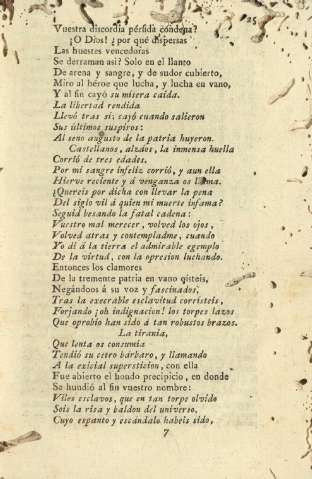 25
Vuestra discordia pérfida condena?
¡O Dios! ¿por qué dispersas
Las huestes vencedoras
Se derraman asi? Solo en el llanto
De arena y sangre, y de sudor cubierto,
Miro al héroe que lucha, y lucha en vano,
Y al fin cayó su misera caida.
La libertad rendida
Llevó tras sí: cayó cuando salieron
Sus últimos suspiros:
Al seno augusto de la patria huyeron.
Castellanos, alzáos, la inmensa huella
Corrió de tres edades.
Por mi sangre infeliz corrió, y aun ella
Hierve reciente y á venganza os llama.
¿Quereis por dicha con llevar la pena
Del siglo vil á quien mi muerte infama?
Seguid besando la fatal cadena:
Vuestro mal merecer, volved los ojos,
Volved atras y contempladme, cuando
Yo dí á la tierra el admirable egemplo
De la virtud, con la opresion luchando.
Entonces los clamores
De la tremente patria en vano oisteis,
Negándoos á su voz y fascinados,
Tras la execrable esclavitud corristeis,
Forjando ¡oh indignacion! los torpes lazos
Que oprobio han sido á tan robustos brazos.
La tirania,
Que lenta os consumia
Tendió su cetro bárbaro, y llamando
A la exicial supersticion, con ella
Fue abierto el hondo precipicio, en donde
Se hundió al fin vuestro nombre:
Viles esclavos, que en tan torpe olvido
Sois la risa y baldon del universo,
Cuyo espanto y escándalo habeis sido,
7